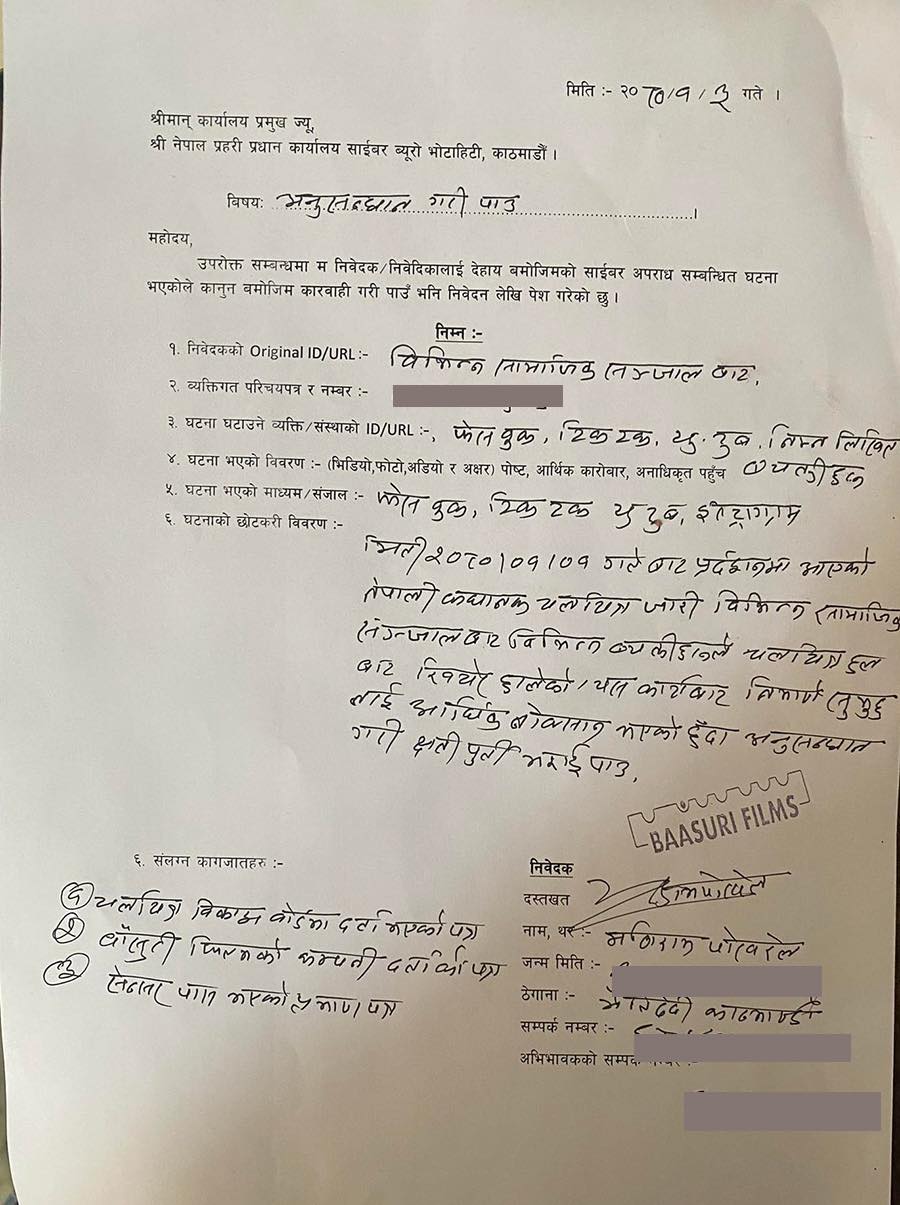 मिति :- २०८०/१/३ गते ।
श्रीमान् कार्यालय प्रमुख ज्यू,
श्री नेपाल प्रहरी प्रधान कार्यालय साईबर ब्यूरो भोटाहिटी, काठमाडौं ।
विषयः अनुसन्धान गरी पाउ
महोदय,
उपरोक्त सम्बन्धमा म निवेदक/निवेदिकालाई देहाय बमोजिमको साईबर अपराध सम्बन्धित घटना
भएकोले कानुन बमोजिम कारवाही गरी पाउँ भनि निवेदन लेखि पेश गरेको छु ।
निम्न :-
१. निवेदकको Original ID/URL :- विभिन्न सामाजिक सञ्जाल बाट,
२. व्यक्तिगत परिचयपत्र र नम्बर :-
३. घटना घटाउने व्यक्ति/संस्थाको ID/URL :-, फेस बुक, टिक टक, यु.टुब, निम्न लिखित
४. घटना भएको विवरण :- (भिडियो,फोटो,अडियो र अक्षर) पोष्ट, आर्थिक कारोबार, अनाधिकृत पहुँच
५. घटना भएको माध्यम/संजाल :- फेस बुक, टिक टक यु टुब,
६. घटनाको छोटकरी विवरण :-
मिती २०८०/०१/०१ गते बाट आएको
नेपाली कथानक चलचित्र जारी विभिन्न सामाजिक
सञ्जाल बाट विभिन्न चलचित्र हल
बाट यस कार्यबाट निर्माण
लाई आर्थिक भएको हुँदा अनुसन्धान
गरी क्षती पुर्ती भराई पाउ,
BAASURI FILMS
६. संलग्न कागजातहरु :-
निवेदक
दस्तखत
१ चलचित्र विकास बोर्डमा दर्ता भएको पत्र
नाम, थर :- मनिराम पोखरेल
२ बाँसुरी फिल्मको कम्पनी दर्ताको पत्र
जन्म मिति :-
३ सेन्सर पास भएको प्रमाण पत्र
ठेगाना :- काठमाण्डौ
सम्पर्क नम्बर :-
अभिभावकको